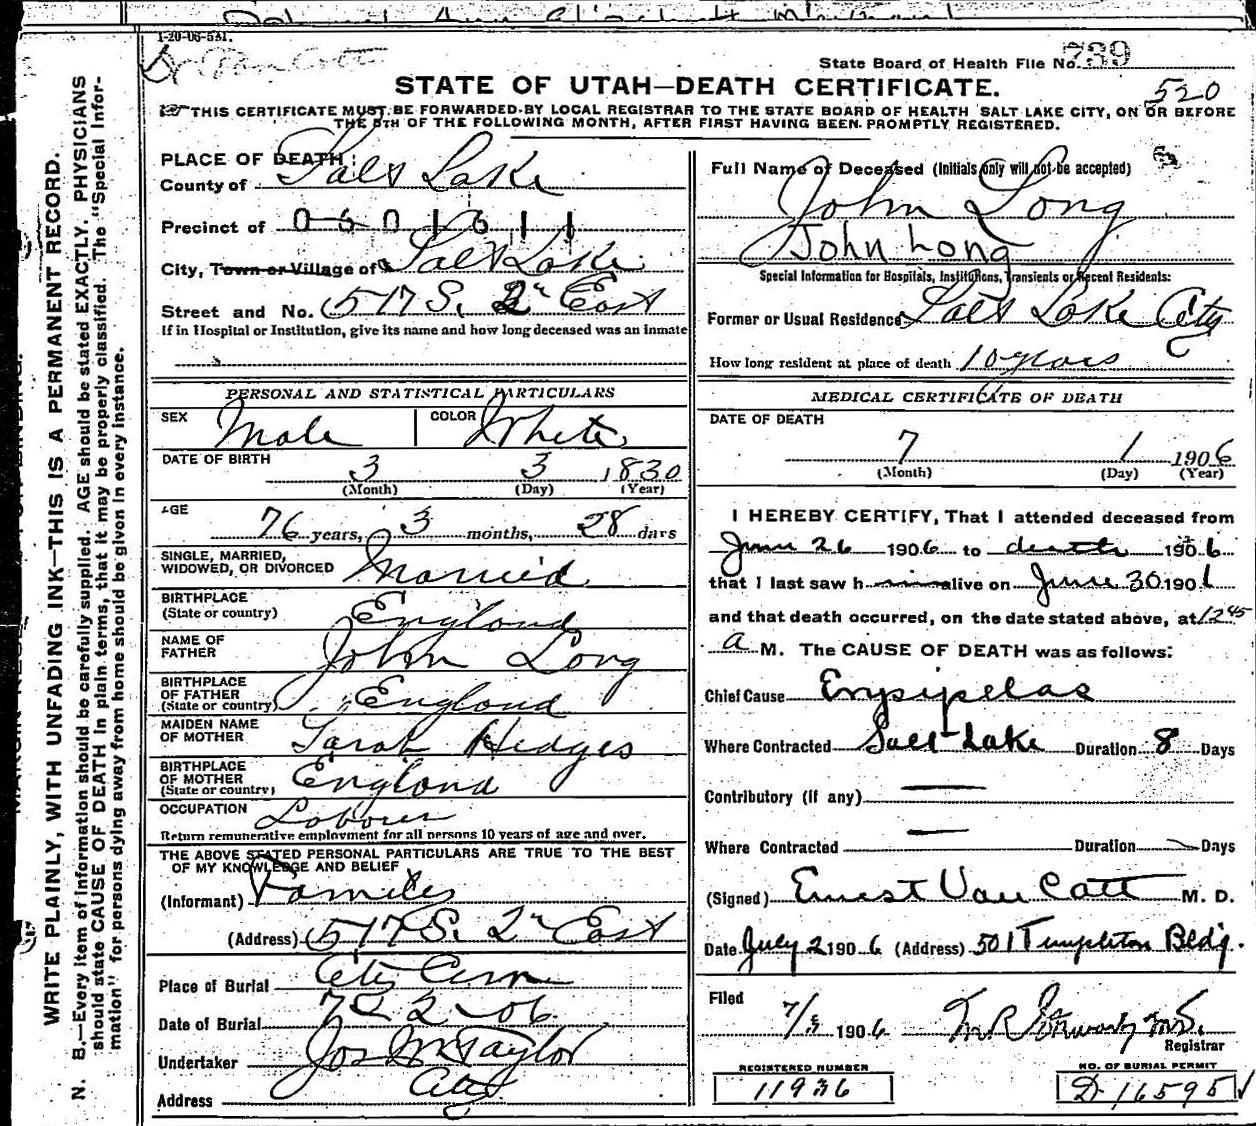 1-20-06-5M.
Dr Van Cott
State Board of Health File No. 739
STATE OF UTAH—DEATH CERTIFICATE.
520
THIS CERTIFICATE MUST BE FORWARDED BY LOCAL REGISTRAR TO THE STATE BOARD OF HEALTH SALT LAKE CITY, ON OR BEFORE
THE 5TH OF THE FOLLOWING MONTH, AFTER FIRST HAVING BEEN PROMPTLY REGISTERED.
PLACE OF DEATH:
County of Salt Lake
Precinct of 0601611
City, Town or Village of Salt Lake
Street and No. 517 S. 2n East
If in Hospital or Institution, give its name and how long deceased was an inmate
PERSONAL AND STATISTICAL PARTICULARS
SEX Male COLOR White
DATE OF BIRTH
3 3 1830
(Month) (Day) (Year)
AGE
76 years, 3 months, 28 days
SINGLE, MARRIED,
WIDOWED, OR DIVORCED Married
BIRTHPLACE
(State or country) England
NAME OF
FATHER John Long
BIRTHPLACE
OF FATHER
(State or country) England
MAIDEN NAME
OF MOTHER Sarah Hedges
BIRTHPLACE
OF MOTHER
(State or country) England
OCCUPATION Laborer
Return remunerative employment for all persons 10 years of age and over.
THE ABOVE STATED PERSONAL PARTICULARS ARE TRUE TO THE BEST
OF MY KNOWLEDGE AND BELIEF
(Informant)
(Address) 517 S. 2n East
Place of Burial City Cem
Date of Burial 7-2-06
Undertaker Jos Wm Taylor
Address City
Full Name of Deceased (Initials only will not be accepted)
John Long
John Long
Special Information for Hospitals, Institutions, Transients or Recent Residents:
Former or Usual Residence Salt Lake City
How long resident at place of death 10 years
MEDICAL CERTIFICATE OF DEATH
DATE OF DEATH
7 1 1906
(Month) (Day) (Year)
I HEREBY CERTIFY, That I attended deceased from
June 26 1906 to death 1906
that I last saw h im alive on June 30 190
and that death occurred, on the date stated above, at 12 45
a M. The CAUSE OF DEATH was as follows:
Chief Cause Erysipelas
Where Contracted Salt Lake Duration 8 Days
Contributory (if any) —
Where Contracted — Duration Days
(Signed) Ernest Van Cott M. D.
Date July 2 1906 (Address) 501 Templeton Bldg.
Filed
7/ 1906 M.D.
Registrar
REGISTERED NUMBER
11936
NO. OF BURIAL PERMIT
D-16595
WRITE PLAINLY, WITH UNFADING INK—THIS IS A PERMANENT RECORD.
N. B.—Every item of information should be carefully supplied. AGE should be stated EXACTLY. PHYSICIANS
should state CAUSE OF DEATH in plain terms, that it may be properly classified. The "Special Infor-
mation" for persons dying away from home should be given in every instance.